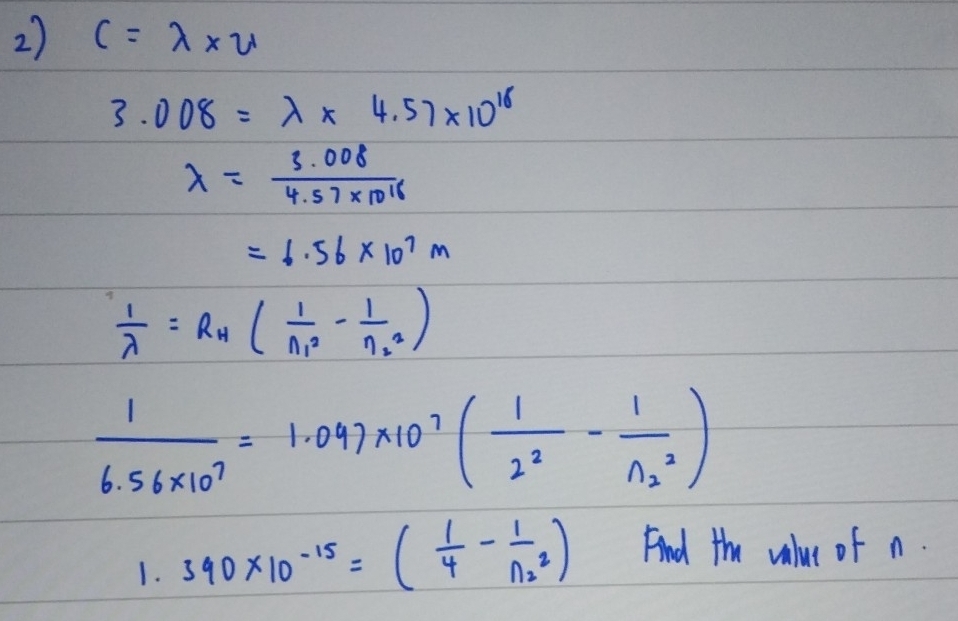 2) C = λ × υ
3.008 = λ × 4.57 × 10¹⁶
λ = 3.008 / 4.57 × 10¹⁶
= 6.56 × 10⁷ m
1/λ = R_H ( 1/n₁² - 1/n₂² )
1/6.56×10⁷ = 1.097×10⁷ ( 1/2² - 1/n₂² )
1.390×10⁻¹⁵ = ( 1/4 - 1/n₂² ) Find the value of n.